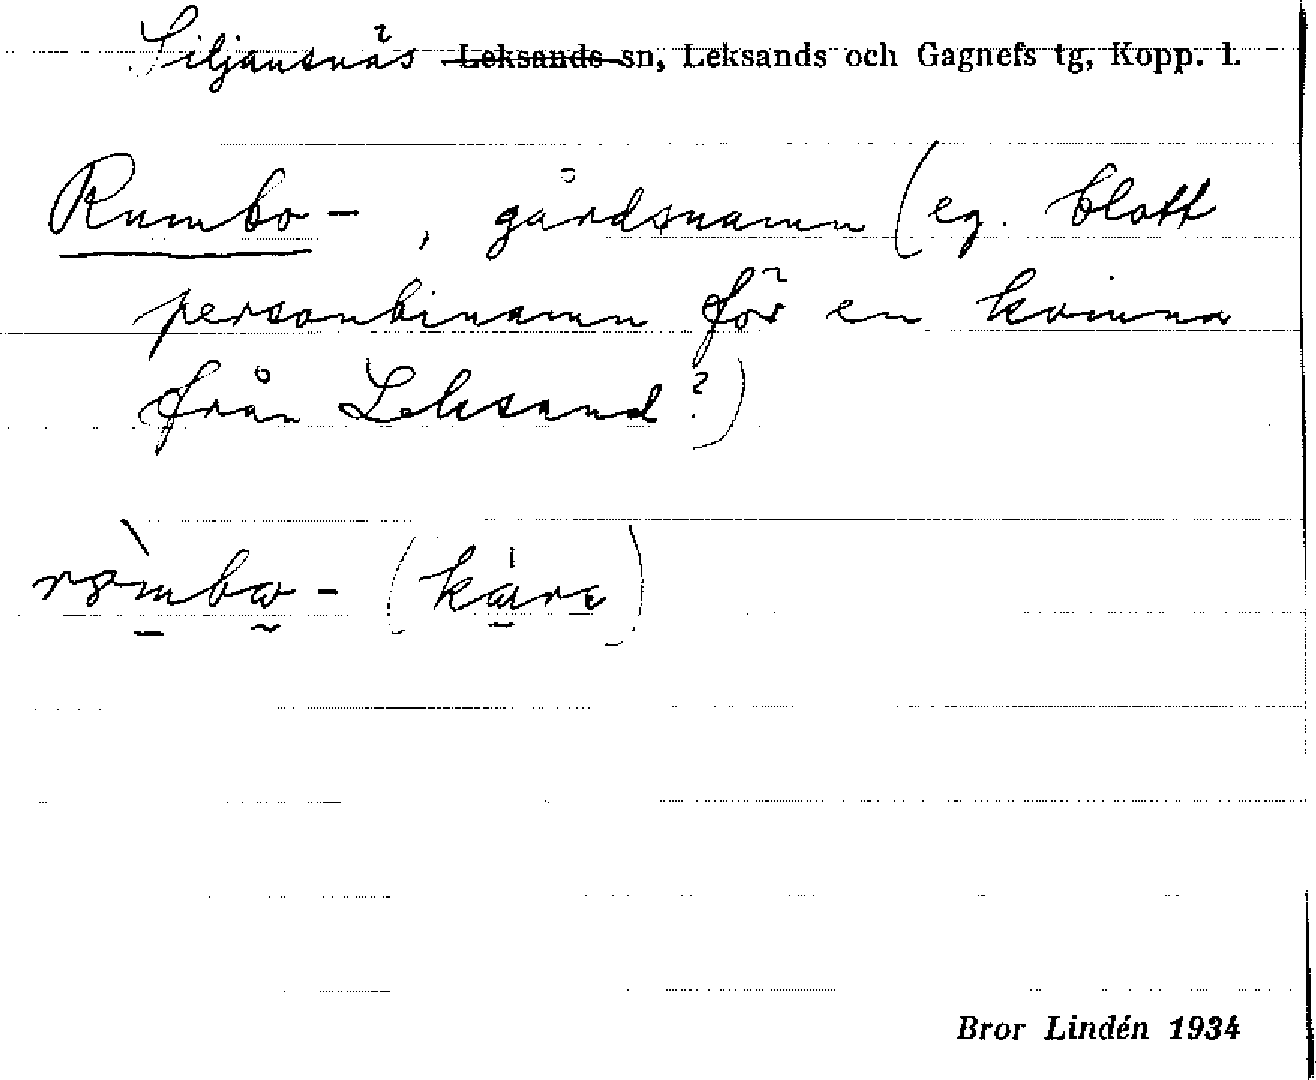 Siljansnäs ~~Leksands~~ sn, Leksands och Gagnefs tg, Kopp. l.
Rumbo-, gårdsnamn (eg. blott
personbinamn för en kvinna
från Leksand?)
Bror Lindén 1934